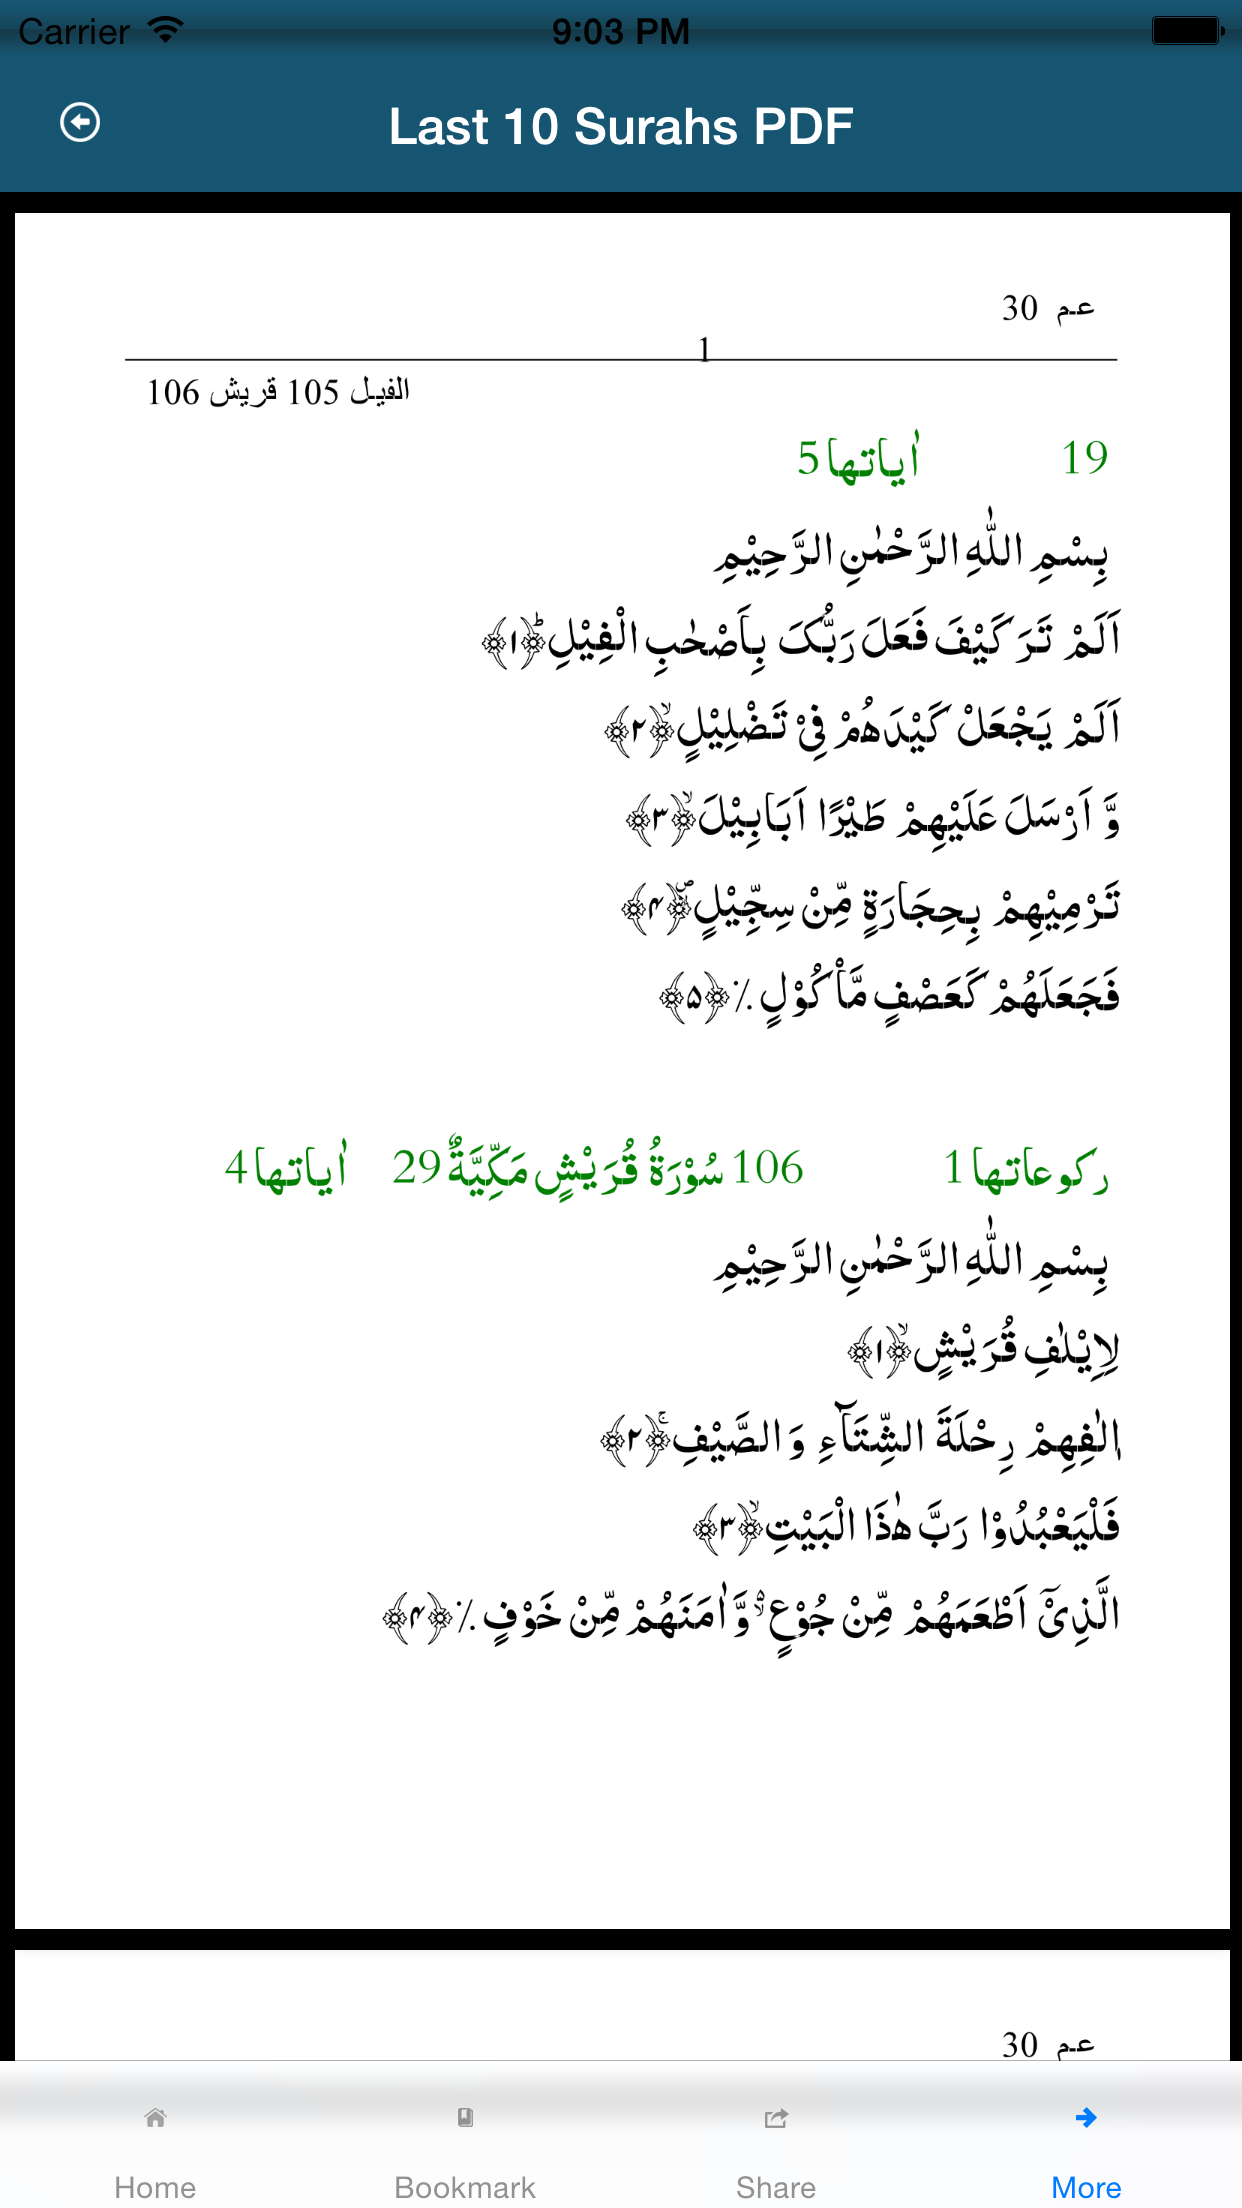 Carrier 9:03 PM
Last 10 Surahs PDF
عم 30
1
الفيل 105 قريش 106
19 اٰياتها 5
بِسْمِ اللّٰهِ الرَّحْمٰنِ الرَّحِيْمِ
اَلَمْ تَرَ كَيْفَ فَعَلَ رَبُّكَ بِاَصْحٰبِ الْفِيْلِؕ﴿۱﴾
اَلَمْ يَجْعَلْ كَيْدَهُمْ فِىْ تَضْلِيْلٍۙ﴿۲﴾
وَّ اَرْسَلَ عَلَيْهِمْ طَيْرًا اَبَابِيْلَۙ﴿۳﴾
تَرْمِيْهِمْ بِحِجَارَةٍ مِّنْ سِجِّيْلٍ۪ۙ﴿۴﴾
فَجَعَلَهُمْ كَعَصْفٍ مَّاْكُوْلٍ٪﴿۵﴾
ركوعاتها 1 106 سُوْرَةُ قُرَيْشٍ مَكِّيَّةٌ 29 اٰياتها 4
بِسْمِ اللّٰهِ الرَّحْمٰنِ الرَّحِيْمِ
لِاِيْلٰفِ قُرَيْشٍۙ﴿۱﴾
اٖلٰفِهِمْ رِحْلَةَ الشِّتَآءِ وَ الصَّيْفِۚ﴿۲﴾
فَلْيَعْبُدُوْا رَبَّ هٰذَا الْبَيْتِۙ﴿۳﴾
الَّذِىْۤ اَطْعَمَهُمْ مِّنْ جُوْعٍ ۙ۬ وَّ اٰمَنَهُمْ مِّنْ خَوْفٍ٪﴿۴﴾
عم 30
Home Bookmark Share More